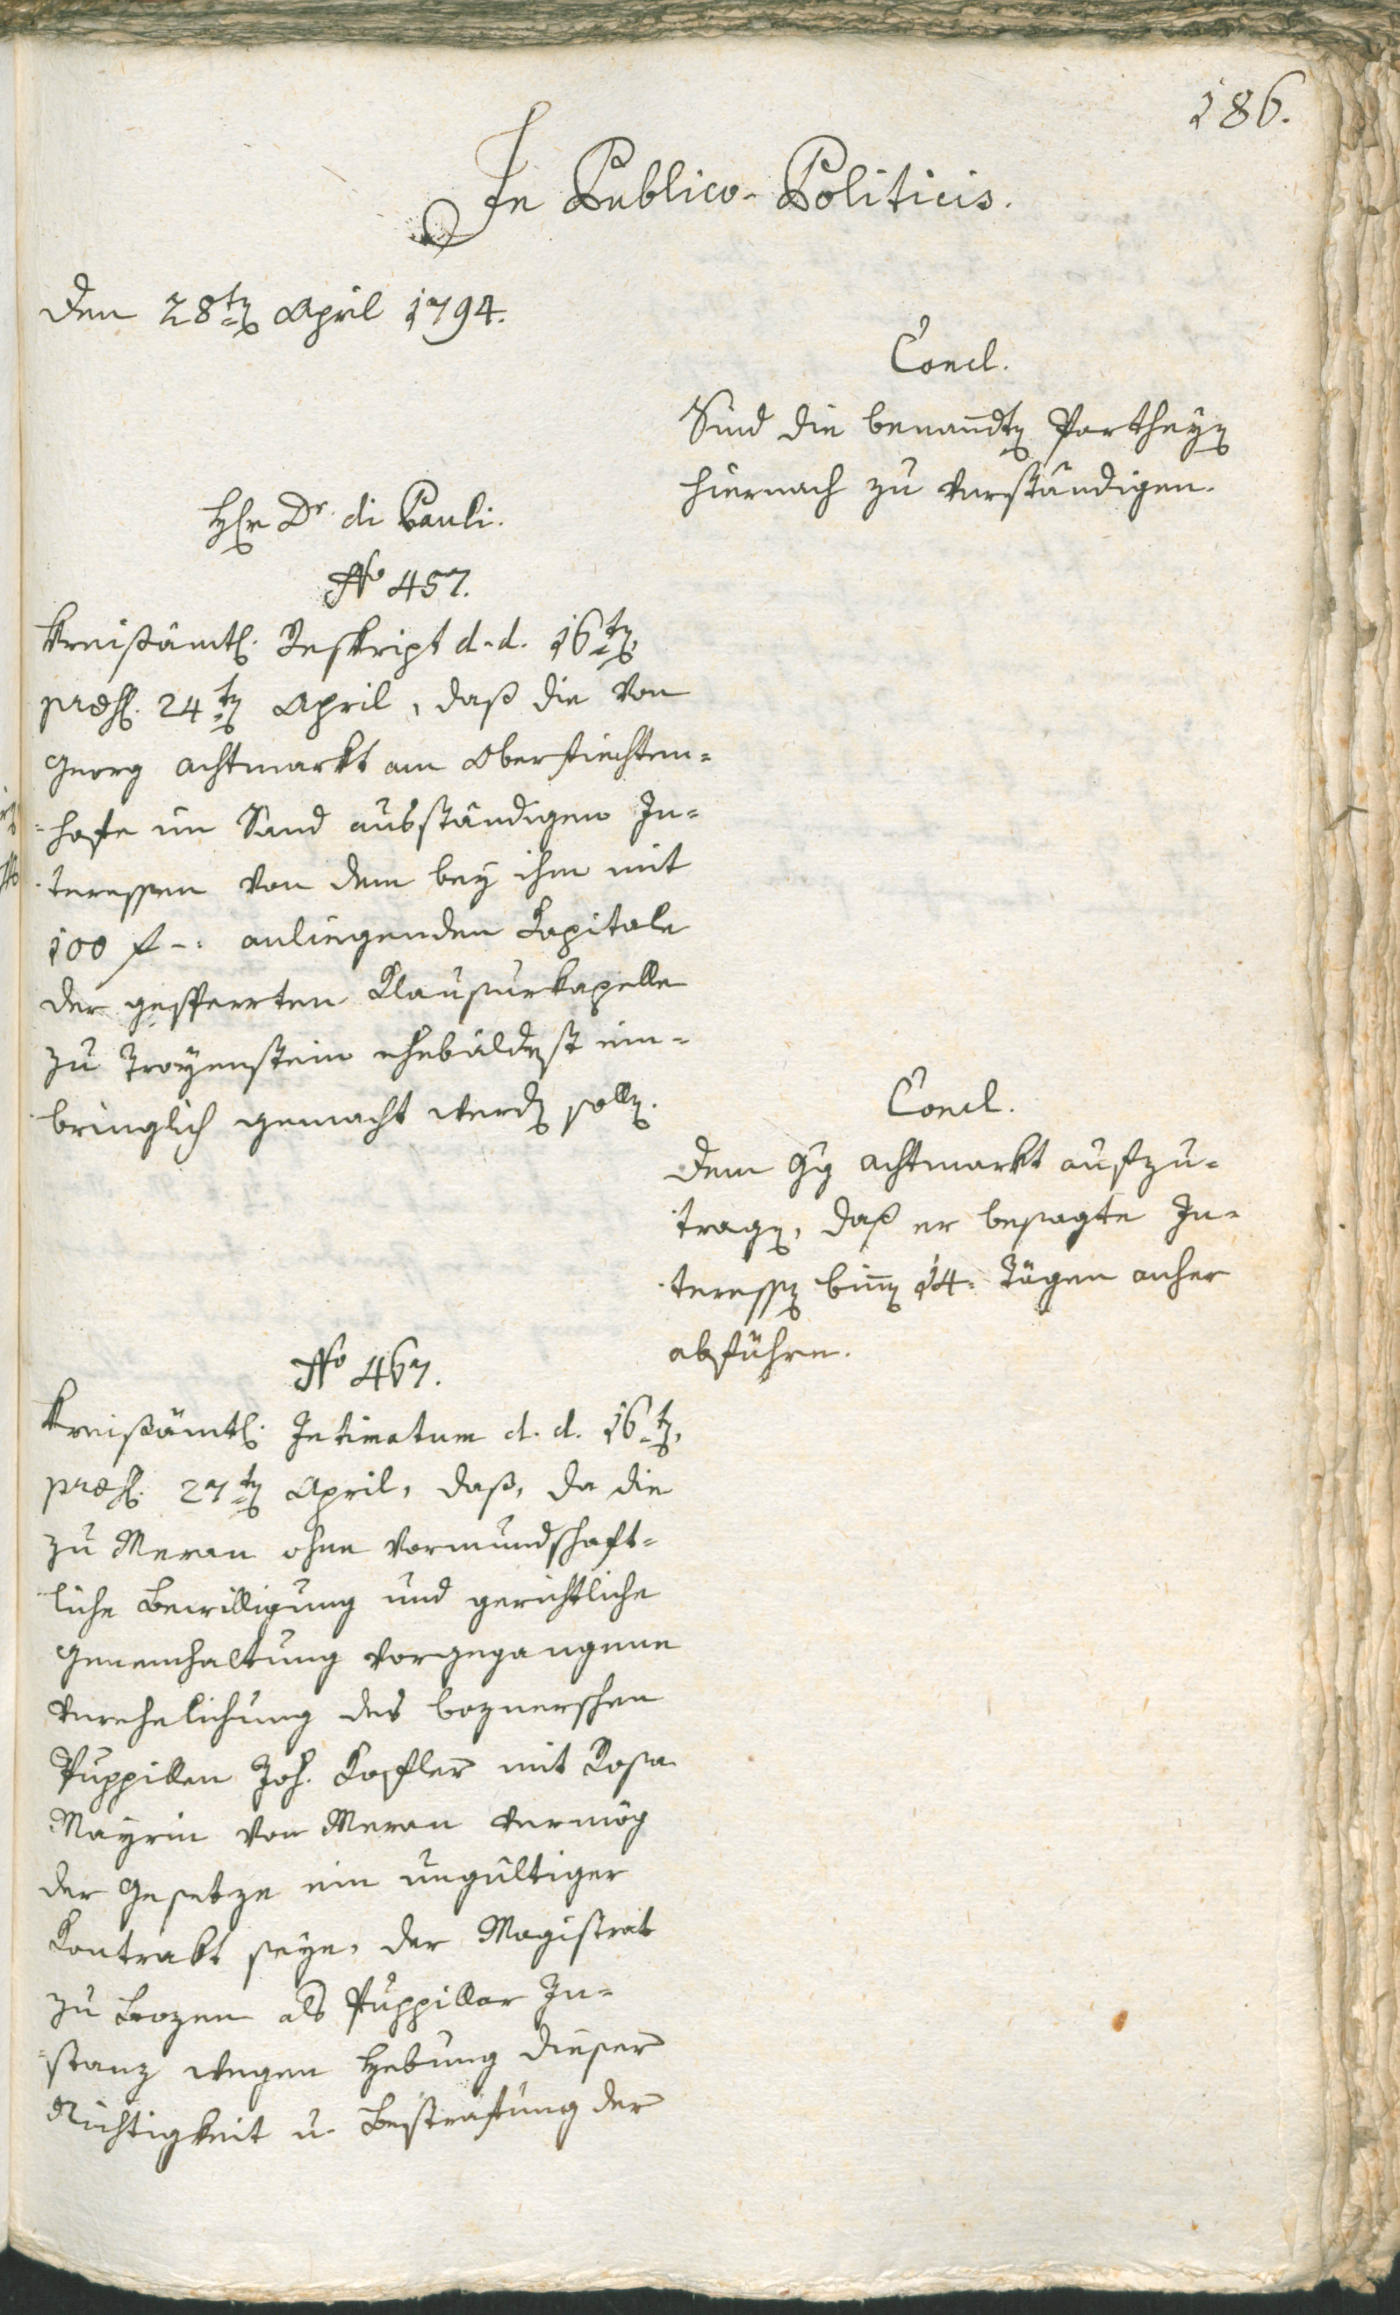 186.
In Publico-Politicis.
Den 28ten April 1794.
Concl.
Sind die benañdten Partheyen
hiernach zu verständigen.
Hr Dr. di Pauli.
No 457.
Kreißämtl. Reskript d. d. 16ten,
præs. 24ten April, daß die von
Georg Achtmarkt am Oberfiechten=
=hofe im Sand ausständigen In=
teressen von dem bey ihm mit
100 f -: anliegenden Kapitale
der gesperrten Klausurkapelle
zu Troyenstein ehebäldest ein=
bringlich gemacht werden sollen.
Concl.
Dem Gg Achtmarkt aufzu=
tragen, daß er besagte In=
teressen biñen 14. Tägen anher
abführe.
No 467.
Kreißämtl. Intimatum d. d. 16ten,
præs. 27ten April, daß, da die
zu Meran ohne vormundschaft=
liche Bewilligung und gerichtliche
Genemhaltung vorgegangene
Verehelichung des boznerschen
Puppillen Joh. Kofler mit Rosa
Mayrin von Meran vermög
der Gesetze ein ungültiger
Kontrakt seye, der Magistrat
zu Bozen als Puppillar In=
=stanz wegen Hebung dieser
Nichtigkeit u. Bestrafung der